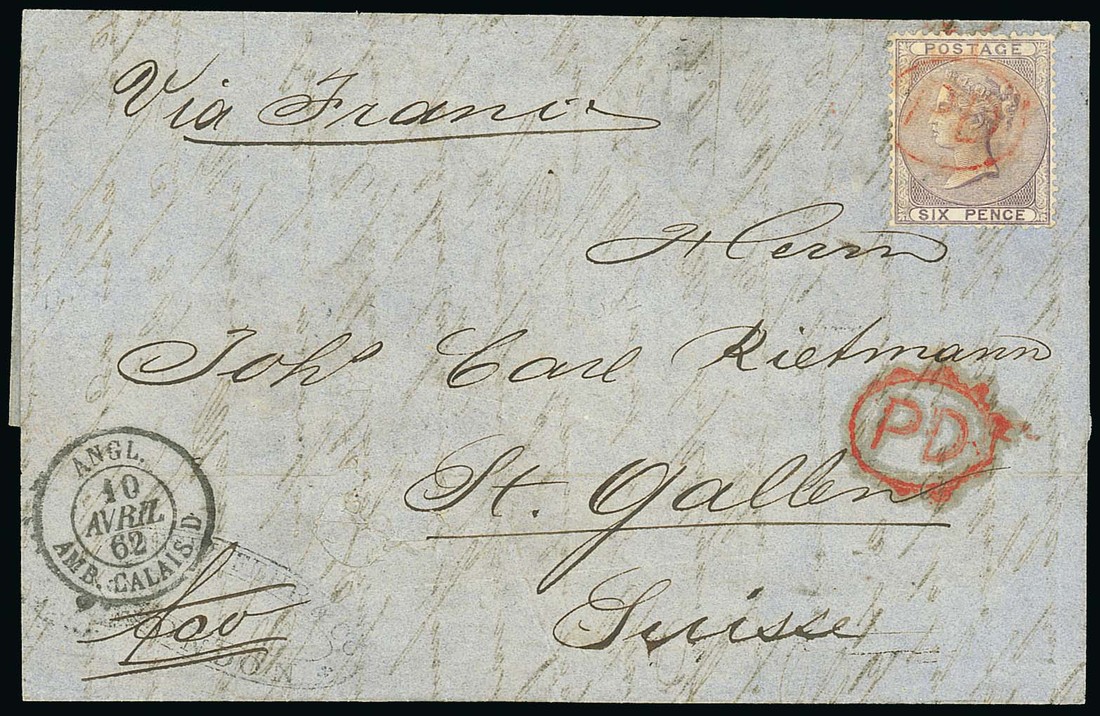 Via France
POSTAGE
SIX PENCE
Herrn
Joh⁠s Carl Rietmann
PD
St. Gallen
Suisse
ANGL.
10
AVRIL
62
AMB. CALAIS. D
fco